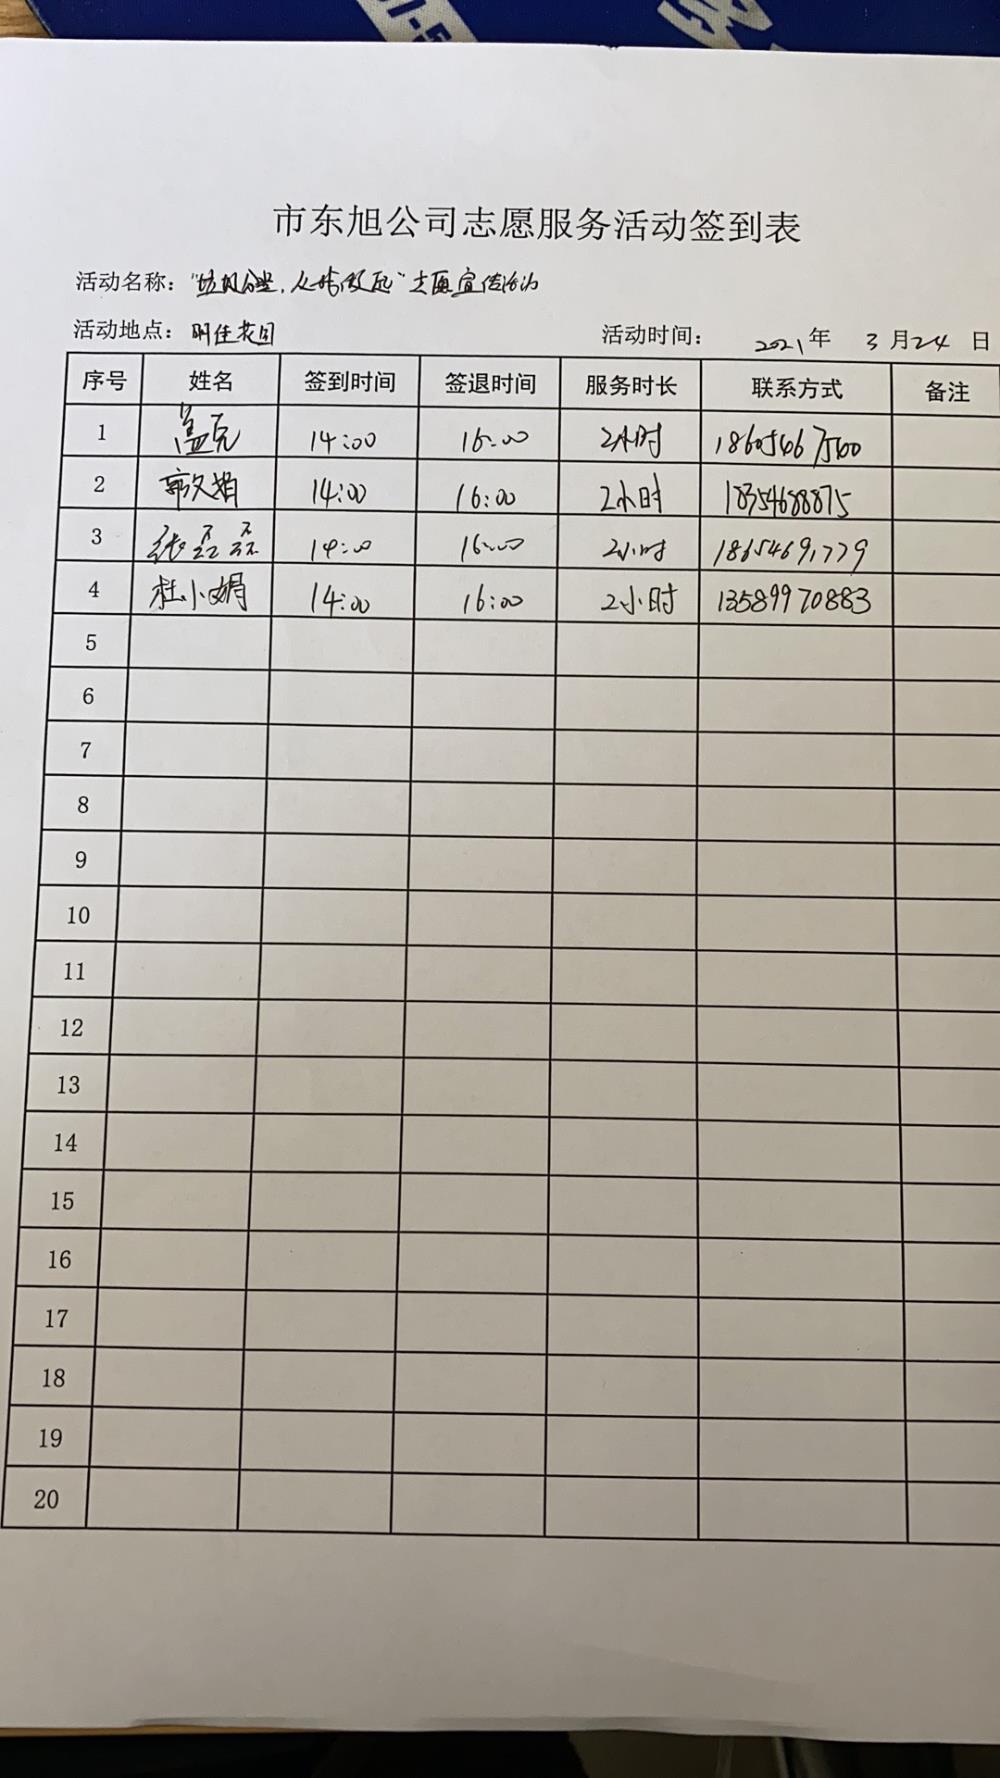 市东旭公司志愿服务活动签到表
活动名称："垃圾分类，从我做起"志愿宣传活动
活动地点：明佳花园 活动时间：2021年 3月24日
序号 姓名 签到时间 签退时间 服务时长 联系方式 备注
1 盖克 14:00 16:00 2小时 18605467560
2 郭文娟 14:00 16:00 2小时 18354688875
3 张磊磊 14:00 16:00 2小时 18654691779
4 杜小娟 14:00 16:00 2小时 13589970883
5
6
7
8
9
10
11
12
13
14
15
16
17
18
19
20